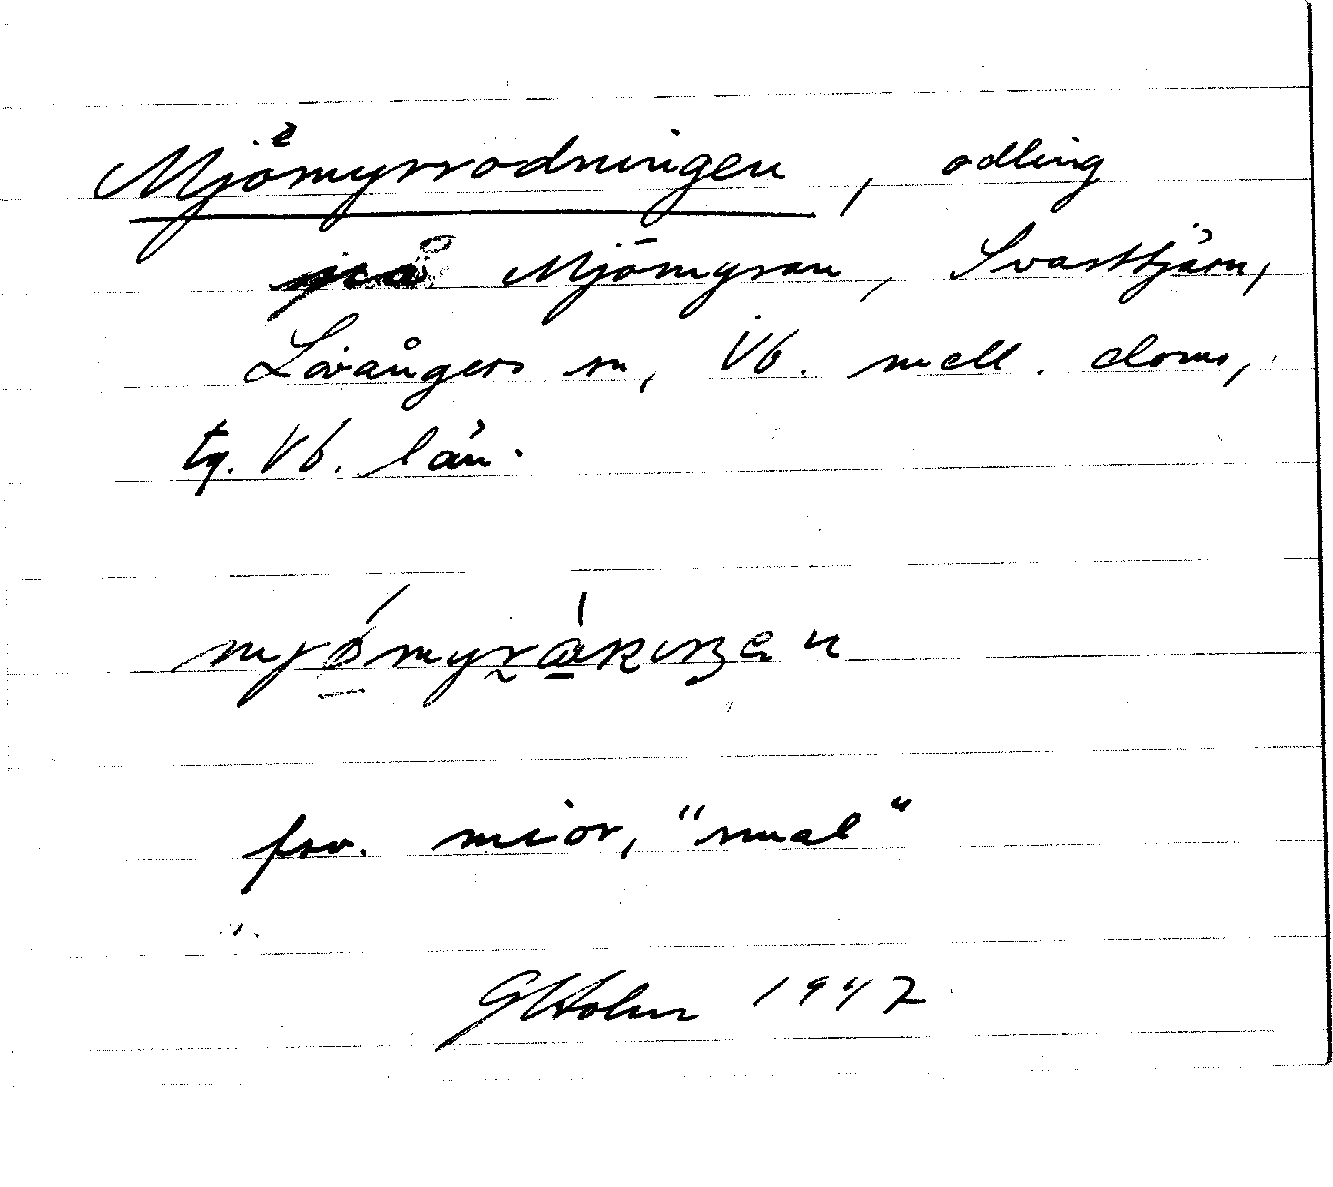 Mjömyrrodningen, odling
på Mjömyran, Svarttjärn,
Lövångers sn, Vb. mell. doms,
tg. Vb. län.
fsv. miör, "smal"
GHolm 1947